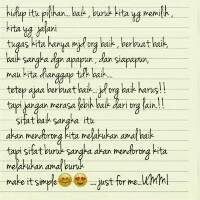 hidup itu pilihan... baik, buruk kita yg memilih,
kita yg jalani
tugas kita hanya mjd org baik, berbuat baik,
baik sangka dgn apapun, dan siapapun,
mau kita dianggap tdh baik...
tetep ajaa berbuat baik.. jd org baik harus!!
tapi jangan merasa lebih baik dari org lain!!
sifat baik sangka itu
akan mendorong kita melakukan amal baik
tapi sifat buruk sangka akan mendorong kita
melakukan amal buruk
make it simple😊😍....just for me..UMMI